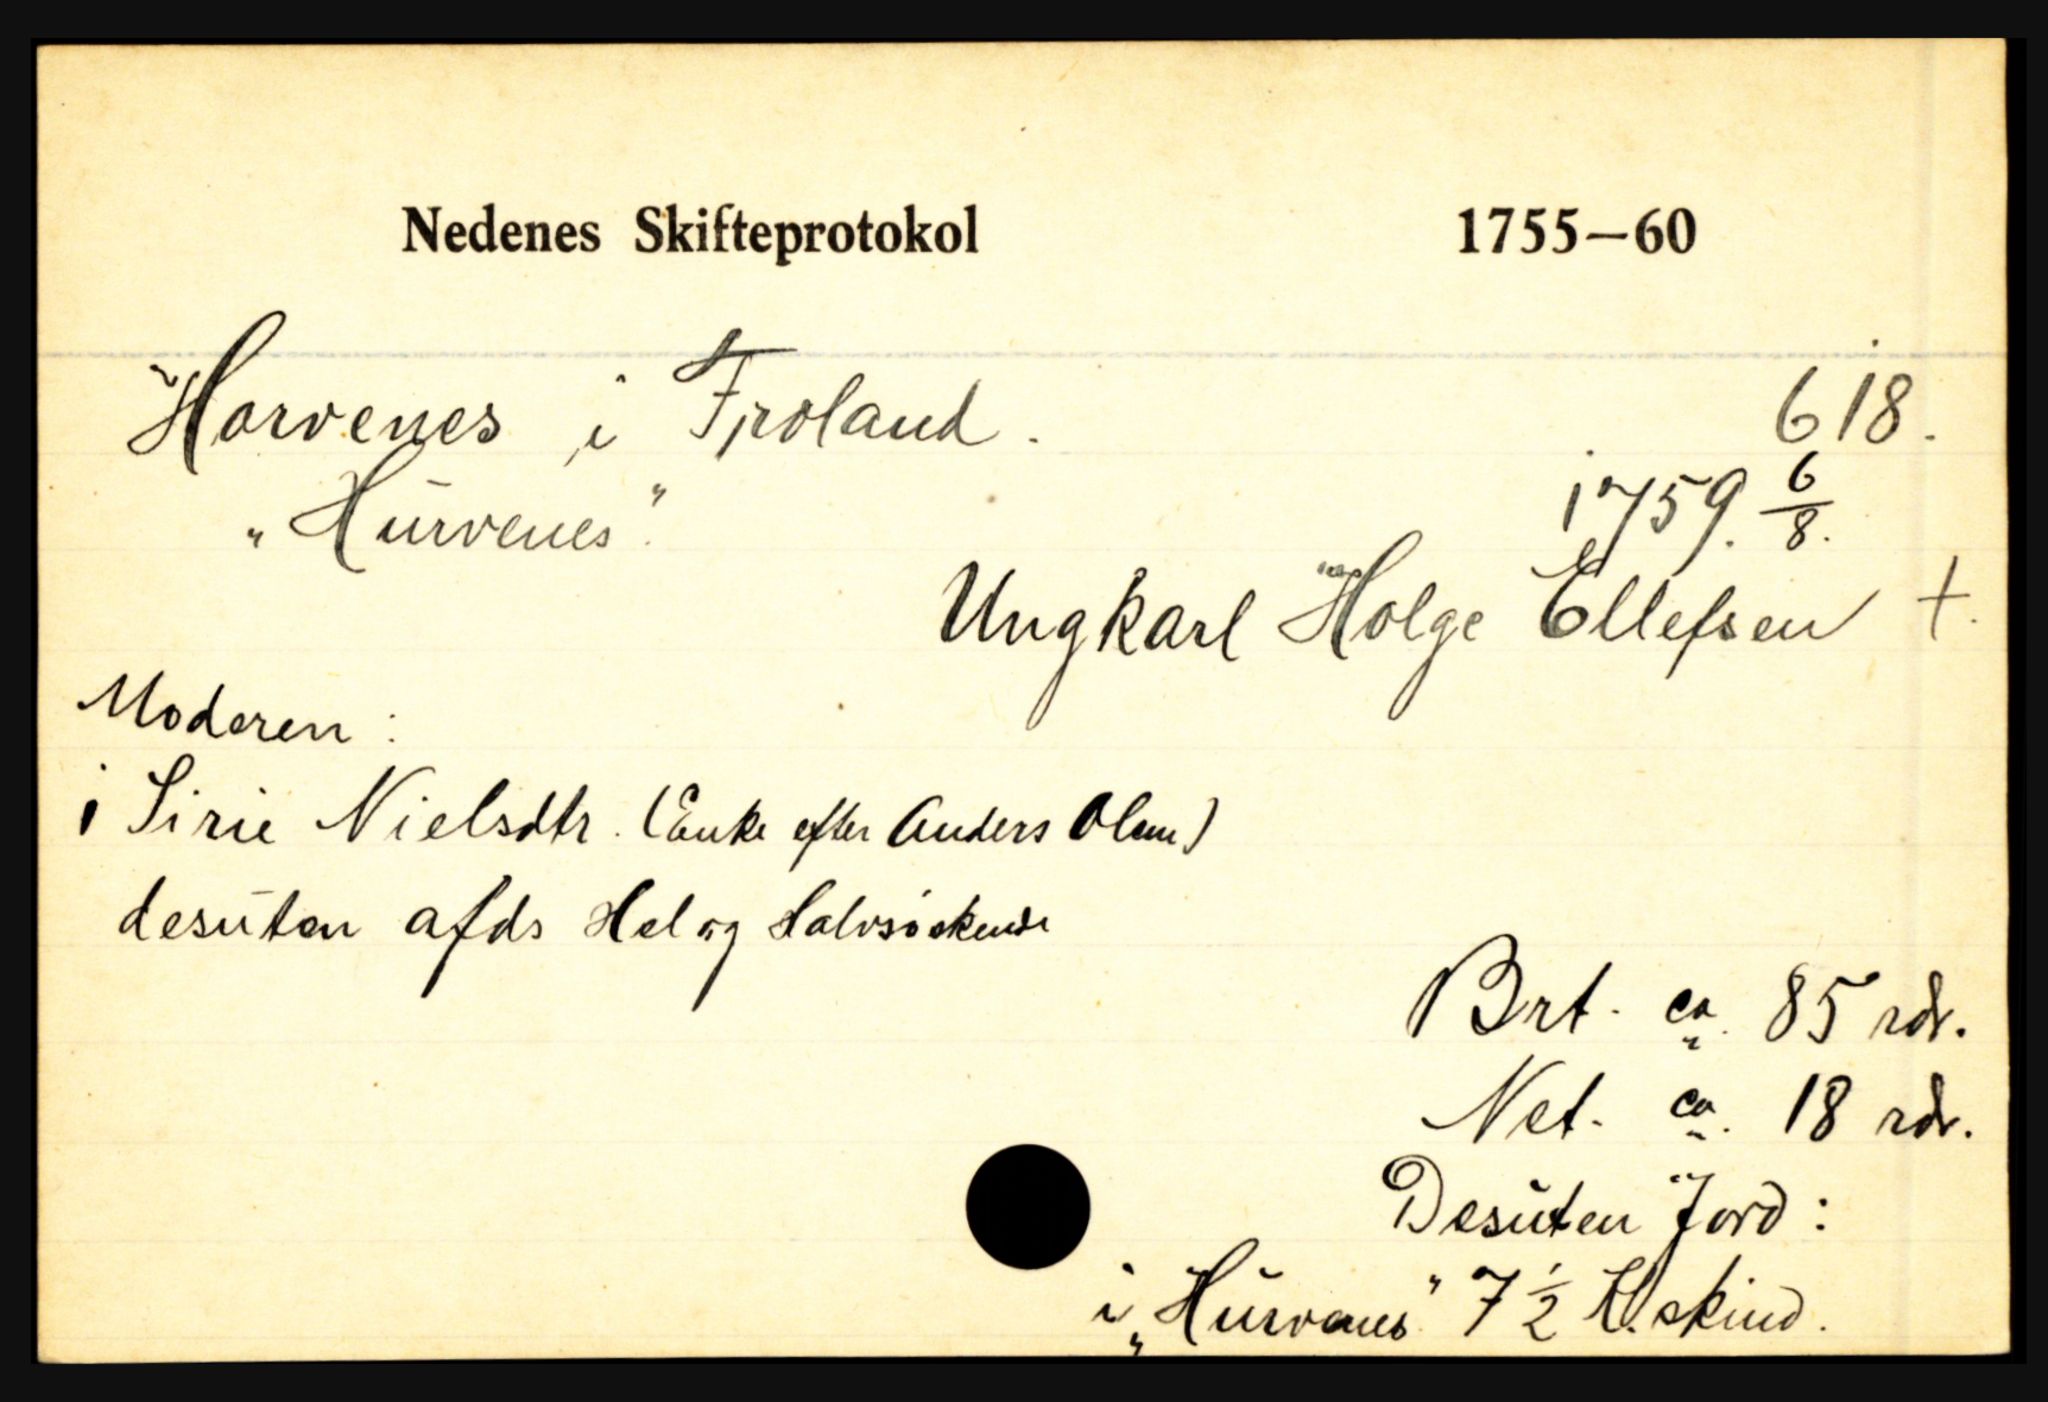 Nedenes Skifteprotokol 1755—60
Horvenes i Froland. 618.
"Hurvenes". 1759. 6/8.
Ungkarl Holge Ellefsen +.
Moderen:
i Sirie Nielsdtr. (Enke efter Anders Olsen)
desuten afds Hel og Halvsøskende
Brt. ca. 85 rdr.
Net. ca. 18 rdr.
Desuten Jord:
i "Hurvenes" 7 1/2 K.skind.